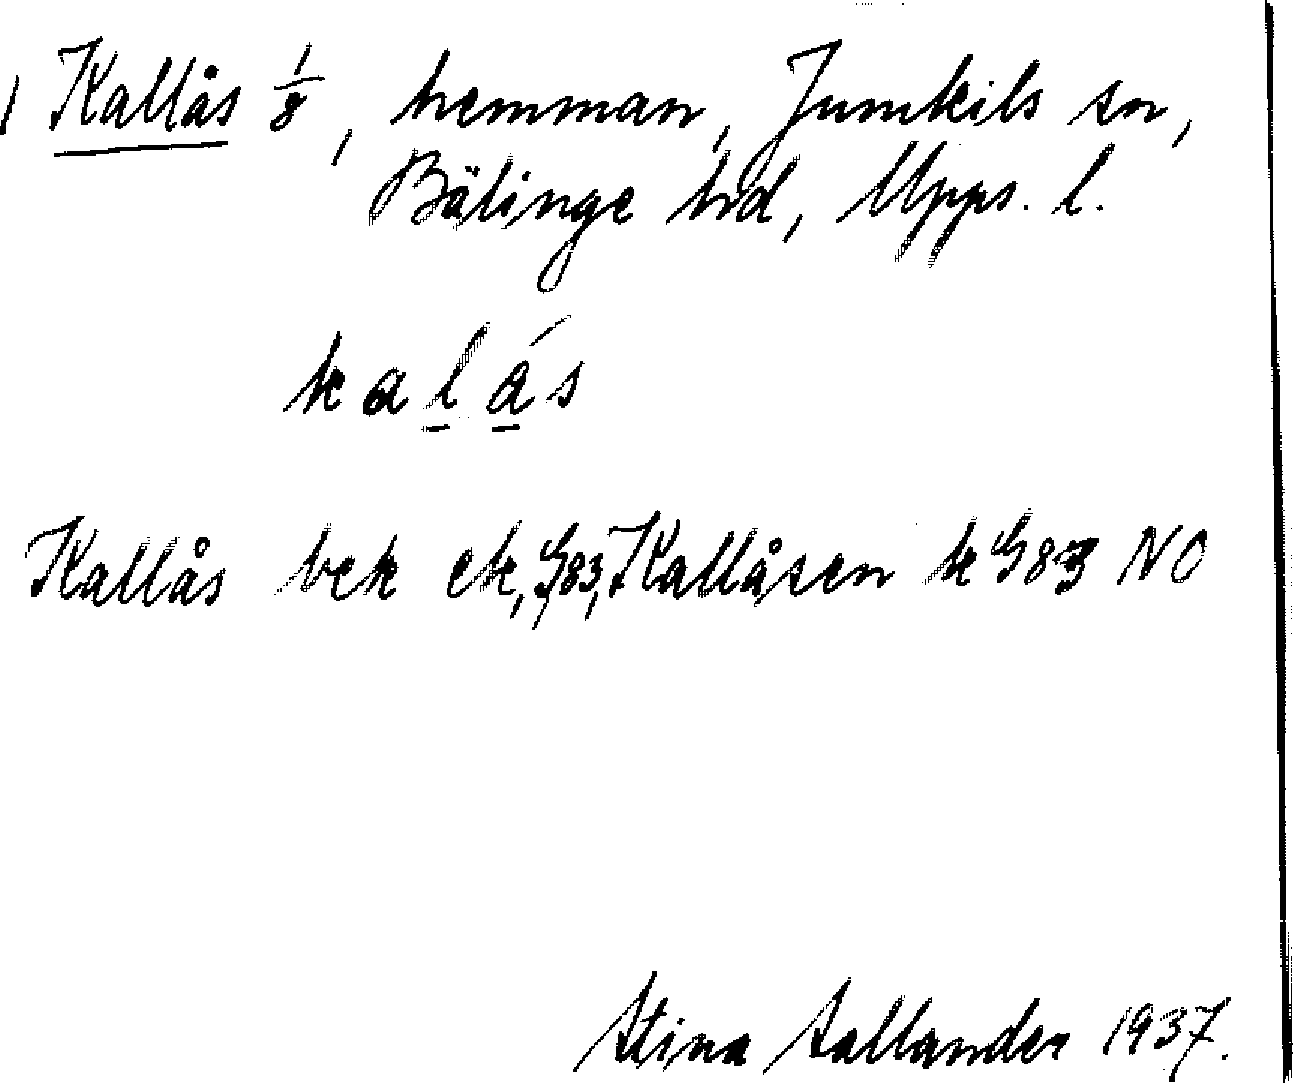 Kallås 1/8, hemman, Jumkils sn,
Bälinge hd, Upps. l.
k a l̲ á̲ s
Kallås bek ek, G83, Kallåsen k G83 NO
Stina Sallander 1937.